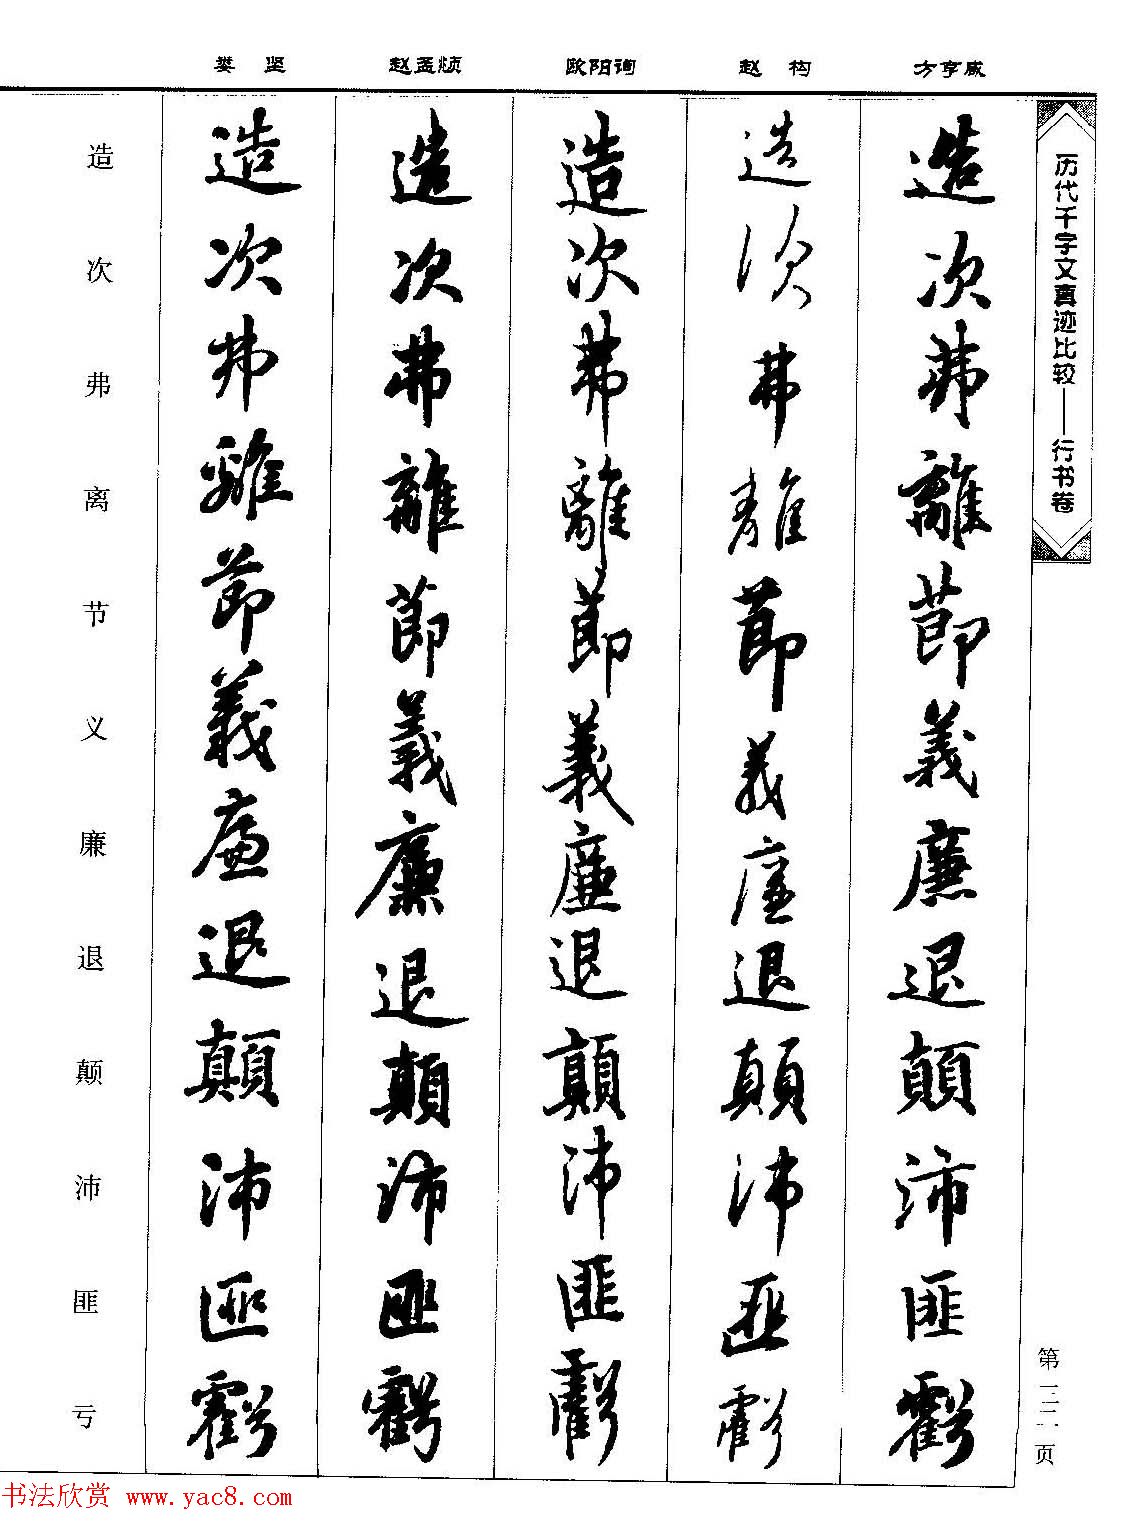 娄 坚
赵孟頫
欧阳询
赵 构
方亨咸
历代千字文真迹比较——行书卷
造次弗離節義廉退顛沛匪虧
造次弗離節義廉退顛沛匪虧
造次弗離節義廉退顛沛匪虧
造次弗離節義廉退顛沛匪虧
造次弗離節義廉退顛沛匪虧
造次弗离节义廉退颠沛匪亏
第一二一页
书法欣赏 www.yac8.com